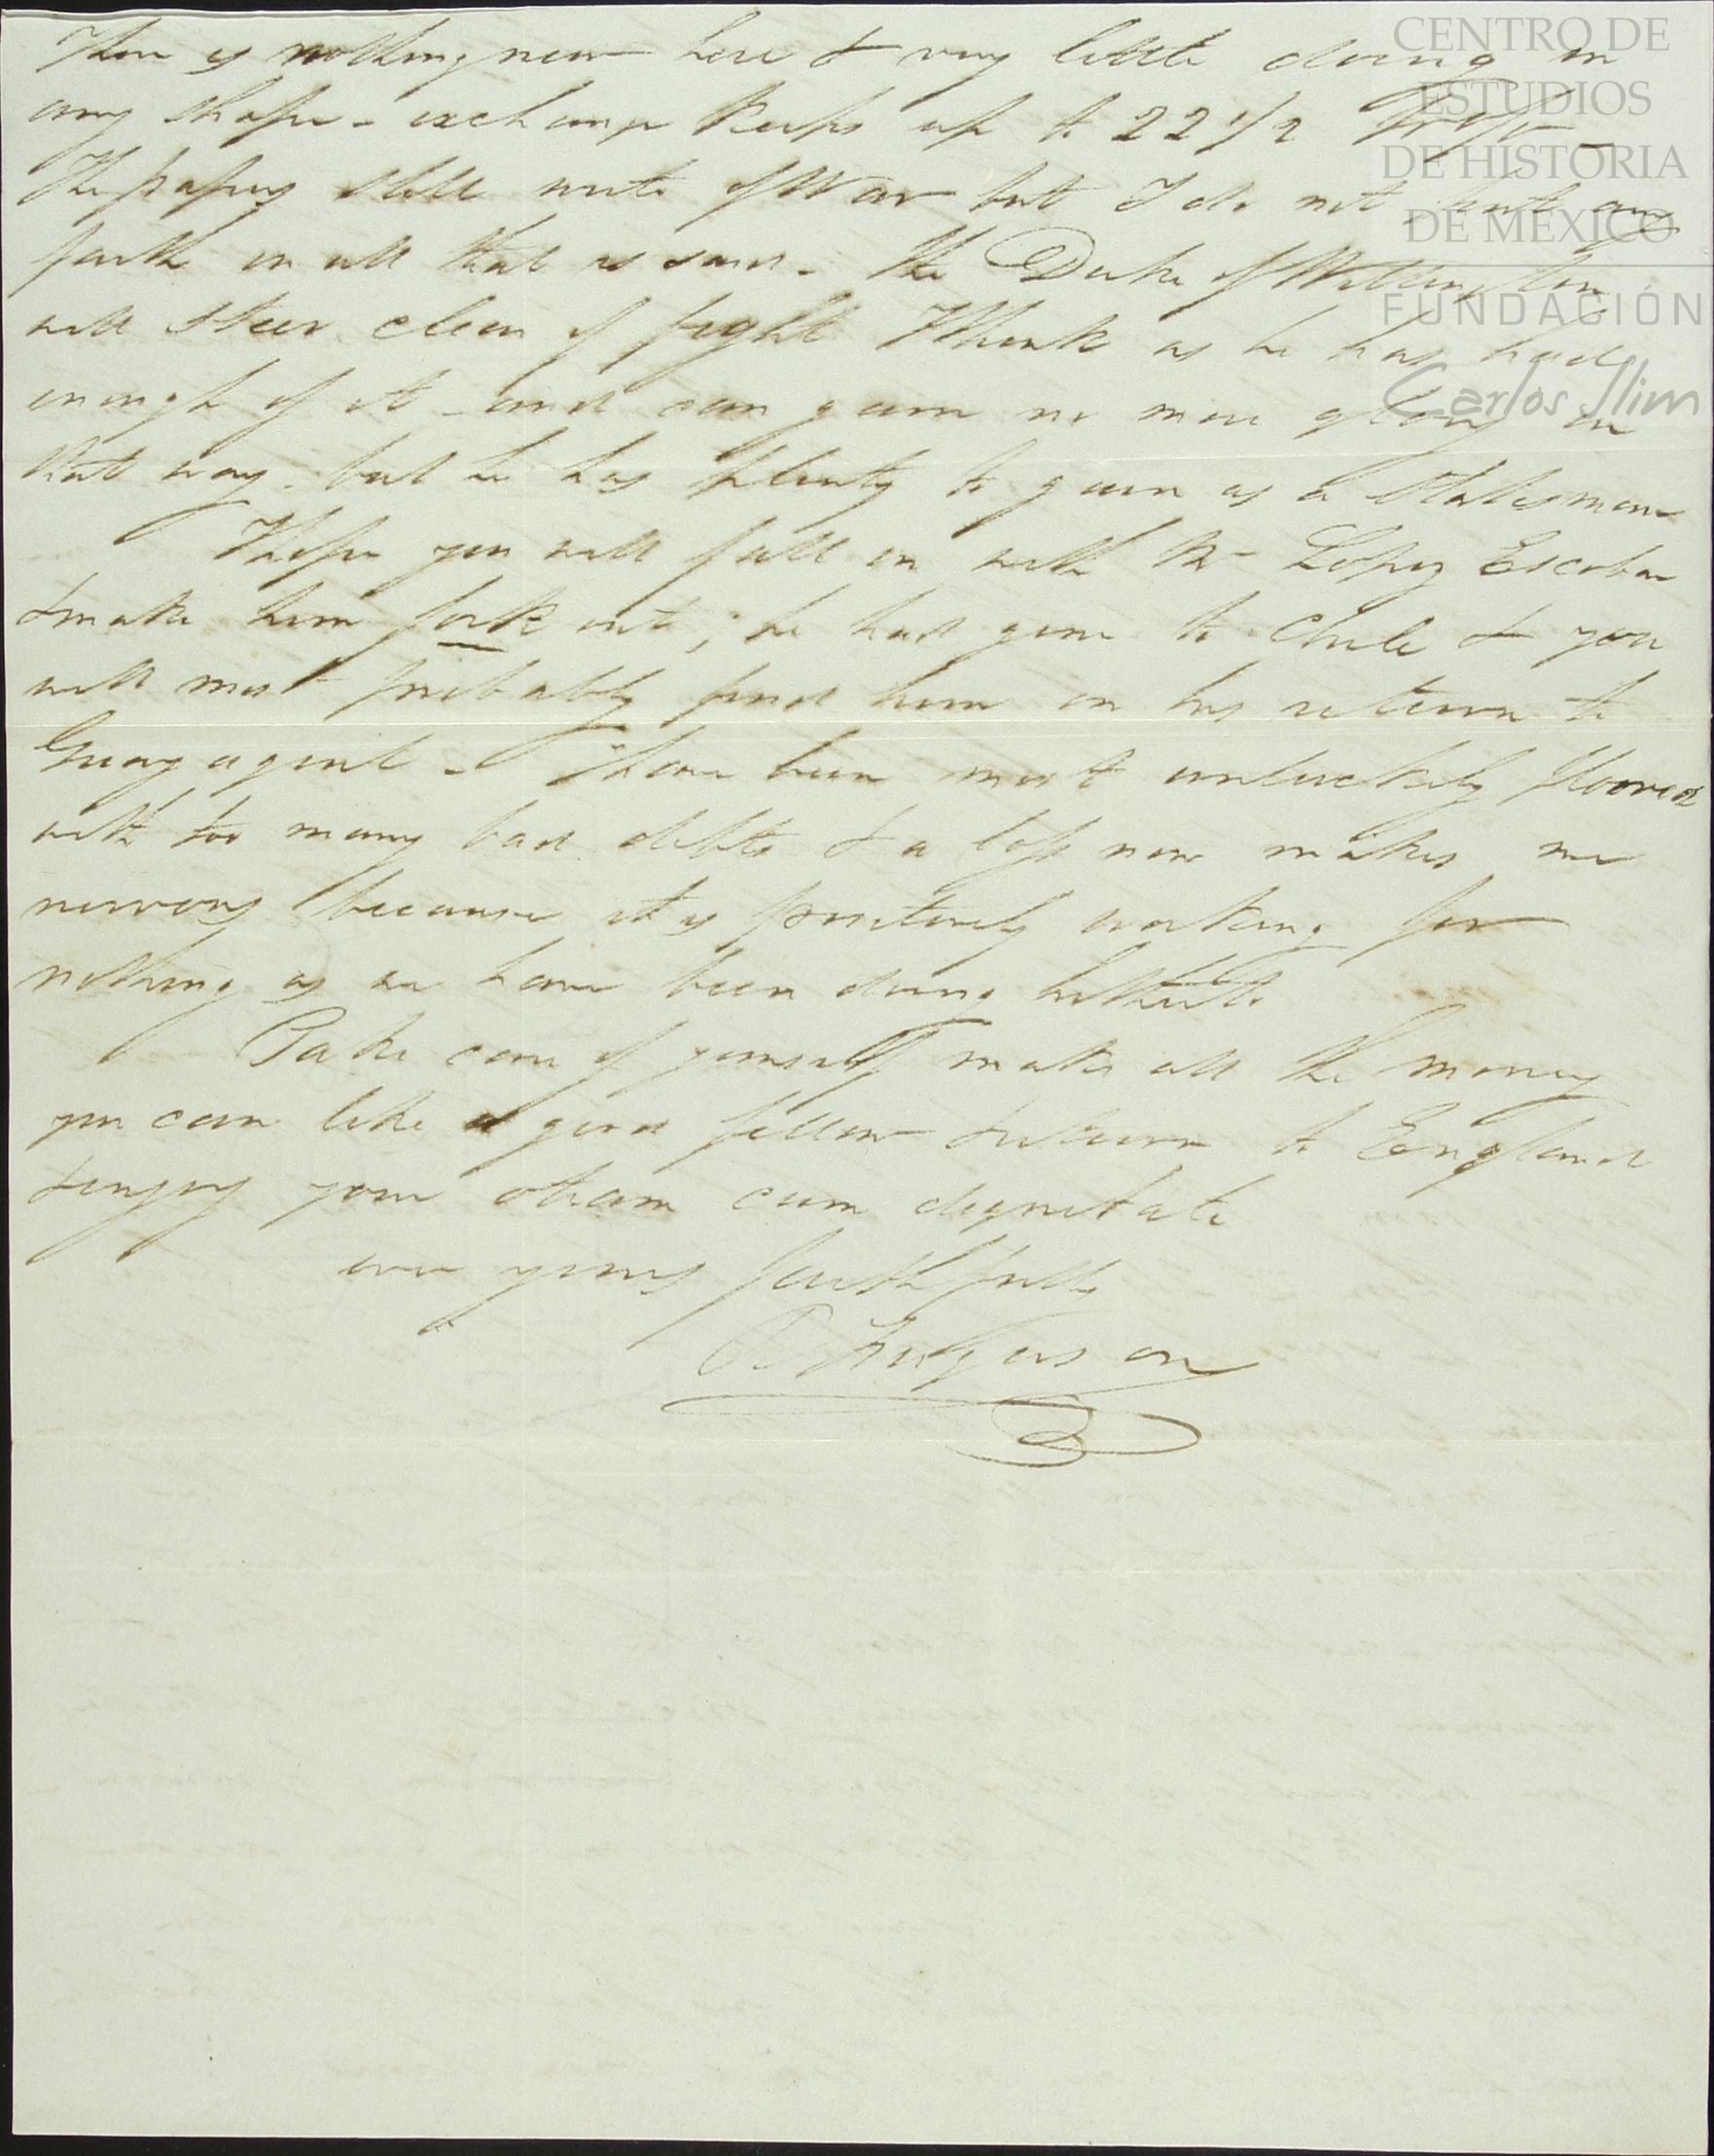 There is nothing new here & very little doing in
any shape - exchange keeps up to 22 1/2
The papers still write of War but I do not put any
faith in all that is said. The Duke of Wellington
will steer clear of fight I think as he has had
enough of it - and can gain no more glory in
that way. but he has plenty to gain as a Statesman
I hope you will fall in with Mr Lopez Escobar
& make him fork out; he had gone to Chile & you
will most probably find him on his return to
Guayaquil - I have been most unluckily floored
with too many bad debts & a loss now makes me
nervous because it is positively working for
nothing as we have been doing hitherto
Take care of yourself make all the money
you can like a good fellow & return to England
& enjoy your otium cum dignitate
ever yours faithfully
CENTRO DE
ESTUDIOS
DE HISTORIA
DE MÉXICO
FUNDACIÓN
Carlos Slim